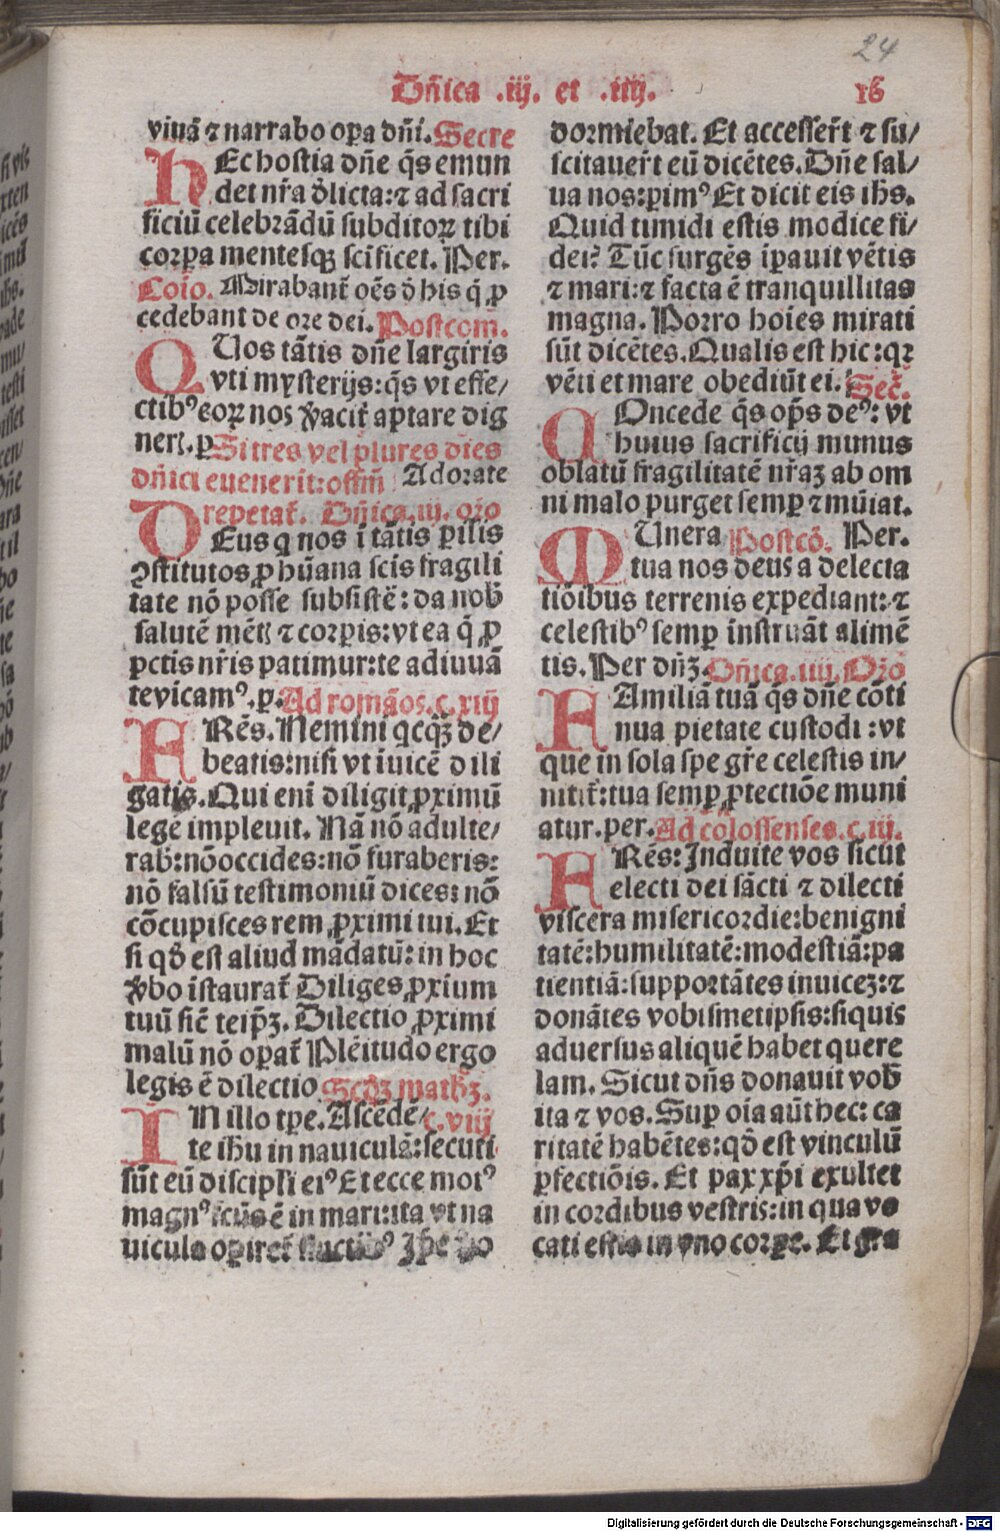 24
Dñica .iij. et .iiij.
16
viuã ⁊ narrabo oꝑa dñi. Secre
HEc hostia dñe q̃s emun
det nr̃a d̾licta: ⁊ ad sacri
ficiũ celebrãdũ subditoꝝ tibi
corꝑa mentesqꝫ scĩficet. Per.
Coĩo. Mirabant᷑ oẽs d̾ his q̃ ꝓ
cedebant de ore dei. Postcom̃.
QUos tãtis dñe largiris
vti mysterijs: q̃s vt effe/
ctibꝰ eoꝝ nos v̾acit᷑ aptare dig
neꝛ. ꝑ Si tres vel plures dies
dñici euenerit: offm̃ Adorate
repetat᷑. Dñica .iij. oꝛo
DEus q nos ĩ tãtis ꝑilis
ꝯstitutos ꝓ hũana scis fragili
tate nõ posse subsistẽ: da nob̃
salutẽ mẽtꝭ ⁊ corꝑis: vt ea q̃ ꝓ
pctis nr̃is patimur: te adiuuã
te vicamꝰ. ꝑ. Ad romãos. c. xiij
FRẽs. Nemini qcq̃ꝫ de/
beatis: nisi vt ĩuicẽ dili
gatis. Qui eni diligit ꝓximũ
legẽ impleuit. Nã nõ adulte/
rab̃: nõ occides: nõ furaberis:
nõ falsũ testimoniũ dices: nõ
cõcupisces rem ꝓximi tui. Et
si qd̾ est aliud mãdatũ: in hoc
v̾bo ĩstaurat᷑ Diliges ꝓxium
tuũ sic̃ teip̃ꝫ. Dilectio ꝓximi
malũ nõ oꝑat᷑ Plẽitudo ergo
legis ẽ dilectio Scd̾ꝫ math̾ꝫ.
IN illo tꝑe. Ascẽde/ c. viij
te ihũ in nauiculã: secuti
sũt eũ discipĺi eiꝰ Et ecce motꝰ
magnꝰ fcũs ẽ in mari: ita vt na
uicula oꝑiret᷑ fluctibꝰ Ip̃e v̾o
dormiebat. Et accesser̃t ⁊ su/
scitauer̃t eũ dicẽtes. Dñe sal/
ua nos: ꝑimꝰ Et dicit eis ihs.
Quid timidi estis modice fi/
dei? Tũc surgẽs iꝑauit vẽtis
⁊ mari: ⁊ facta ẽ tranquillitas
magna. Porro hoĩes mirati
sũt dicẽtes. Qualis est hic: qꝛ
vẽti et mare obediũt ei. Sec̃.
COncede q̃s op̃s deꝰ: vt
huius sacrificij munus
oblatũ fragilitatẽ nr̃aꝫ ab om
ni malo purget semꝑ ⁊ mũiat.
MUnera Postcõ. Per.
tua nos deus a delecta
tiõibus terrenis expediant: ⁊
celestibꝰ semꝑ instruãt alimẽ
tis. Per dñꝫ. Dñica. iiij. Oꝛo
FAmiliã tuã q̃s dñe cõti
nua pietate custodi: vt
que in sola spe gr̃e celestis in/
nitit᷑: tua semꝑ ꝓtectiõe muni
atur. per. Ad colossenses. c. iij.
FRẽs: Induite vos sicut
electi dei sãcti ⁊ dilecti
viscera misericordie: benigni
tatẽ: humilitatẽ: modestiã: pa
tientiã: supportãtes inuicẽꝫ: ⁊
donãtes vobismetipsis: siquis
aduersus aliquẽ habet quere
lam. Sicut dñs donauit vob̃
ita ⁊ vos. Suꝑ oĩa aũt hec: ca
ritatẽ habẽtes: qd̾ est vinculũ
ꝑfectiõis. Et pax xp̃i exultet
in cordibus vestris: in qua vo
cati estis in vno corꝑe. Et gra
Digitalisierung gefördert durch die Deutsche Forschungsgemeinschaft - DFG